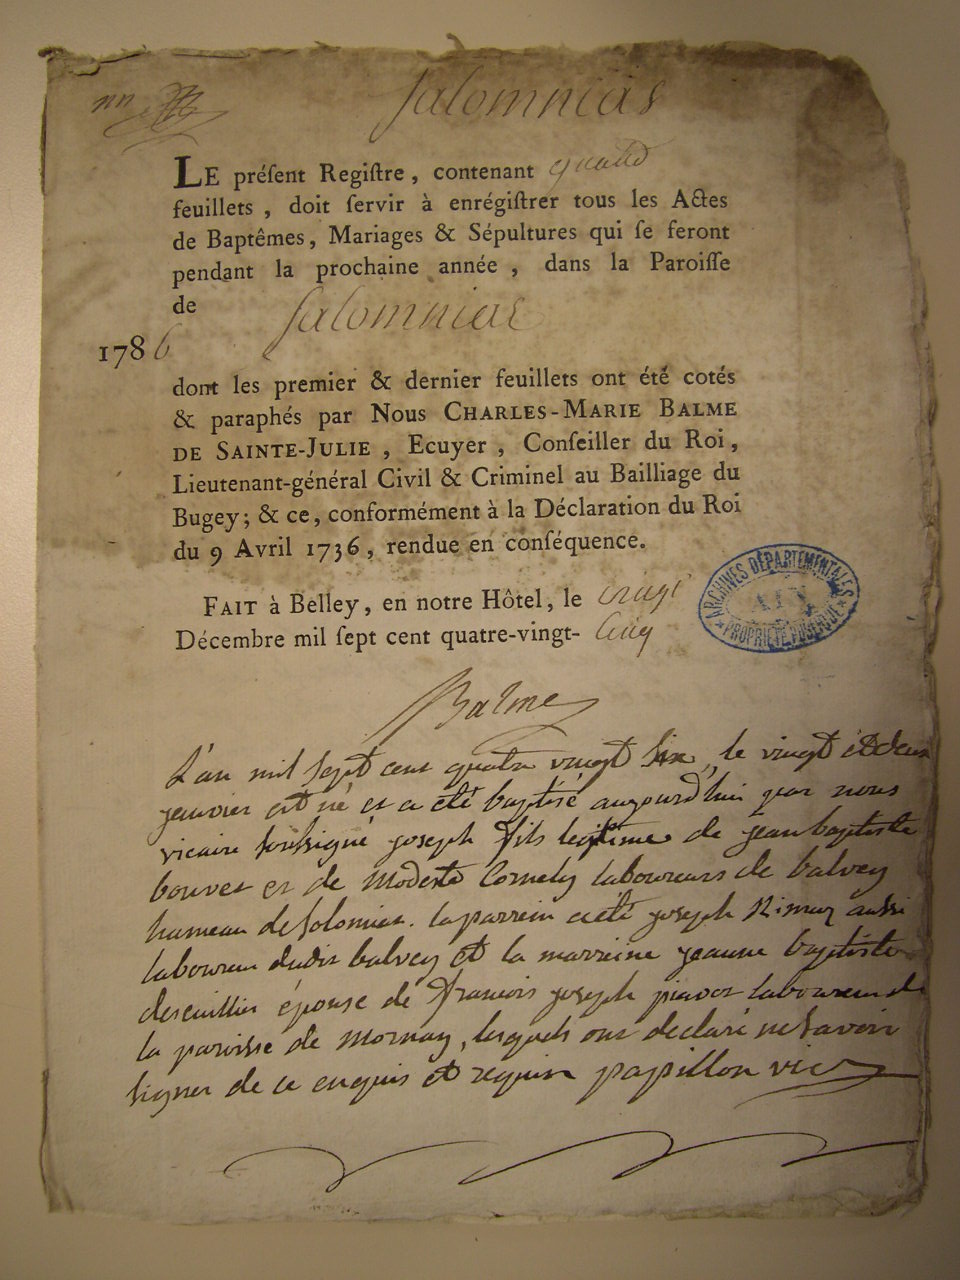 Salomnias
LE préſent Regiſtre, contenant quatre
feuillets, doit ſervir à enrégiſtrer tous les Actes
de Baptêmes, Mariages & Sépultures qui ſe feront
pendant la prochaine année, dans la Paroiſſe
de Salomnias
1786
dont les premier & dernier feuillets ont été cotés
& paraphés par Nous CHARLES-MARIE BALME
DE SAINTE-JULIE, Ecuyer, Conſeiller du Roi,
Lieutenant-général Civil & Criminel au Bailliage du
Bugey; & ce, conformément à la Déclaration du Roi
du 9 Avril 1736, rendue en conſéquence.
FAIT à Belley, en notre Hôtel, le vingt
Décembre mil ſept cent quatre-vingt-cinq
ARCHIVES DÉPARTEMENTALES
AIN
PROPRIÉTÉ PUBLIQUE
Balme
L'an mil sept cent quatre vingt six, le vingt et deux
janvier est né et a été baptisé aujourd'hui par nous
vicaire soussigné joseph fils legitime de jean baptiste
bouvet et de modeste Cornely laboureurs de balvey
hameau de Solomiat. le parrein a été joseph aussi
laboureur dudit balvey et la marreine jeanne baptiste
épouse de françois joseph laboureur de
la paroisse de Mornay, lesquels ont declaré ne savoir
signer de ce enquis et requis papillon vic